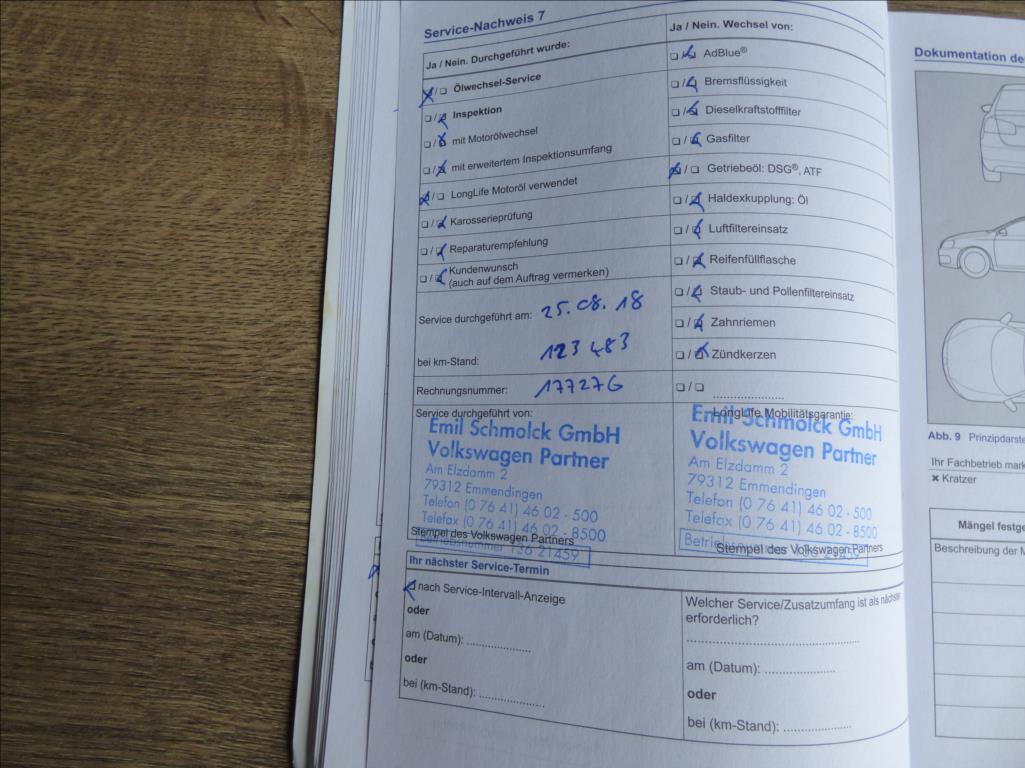 Service-Nachweis 7
Ja / Nein. Durchgeführt wurde:
Ölwechsel-Service
Inspektion
mit Motorölwechsel
mit erweitertem Inspektionsumfang
LongLife Motoröl verwendet
Karosserieprüfung
Reparaturempfehlung
Kundenwunsch
(auch auf dem Auftrag vermerken)
Service durchgeführt am: 25.08.18
bei km-Stand: 123 483
Rechnungsnummer: 177276
Ja / Nein. Wechsel von:
AdBlue®
Bremsflüssigkeit
Dieselkraftstofffilter
Gasfilter
Getriebeöl: DSG®, ATF
Haldexkupplung: Öl
Luftfiltereinsatz
Reifenfüllflasche
Staub- und Pollenfiltereinsatz
Zahnriemen
Zündkerzen
Service durchgeführt von:
Emil Schmolck GmbH
Volkswagen Partner
Am Elzdamm 2
79312 Emmendingen
Telefon (0 76 41) 46 02 - 500
Telefax (0 76 41) 46 02 - 8500
Stempel des Volkswagen Partners
Betriebsnummer 136 21459
LongLife Mobilitätsgarantie:
Emil Schmolck GmbH
Volkswagen Partner
Am Elzdamm 2
79312 Emmendingen
Telefon (0 76 41) 46 02 - 500
Telefax (0 76 41) 46 02 - 8500
Stempel des Volkswagen Partners
Ihr nächster Service-Termin
nach Service-Intervall-Anzeige
oder
am (Datum):
oder
bei (km-Stand):
Welcher Service/Zusatzumfang ist als nächstes
erforderlich?
am (Datum):
oder
bei (km-Stand):
Dokumentation de
Abb. 9 Prinzipdarste
Ihr Fachbetrieb mark
× Kratzer
Mängel festge
Beschreibung der M